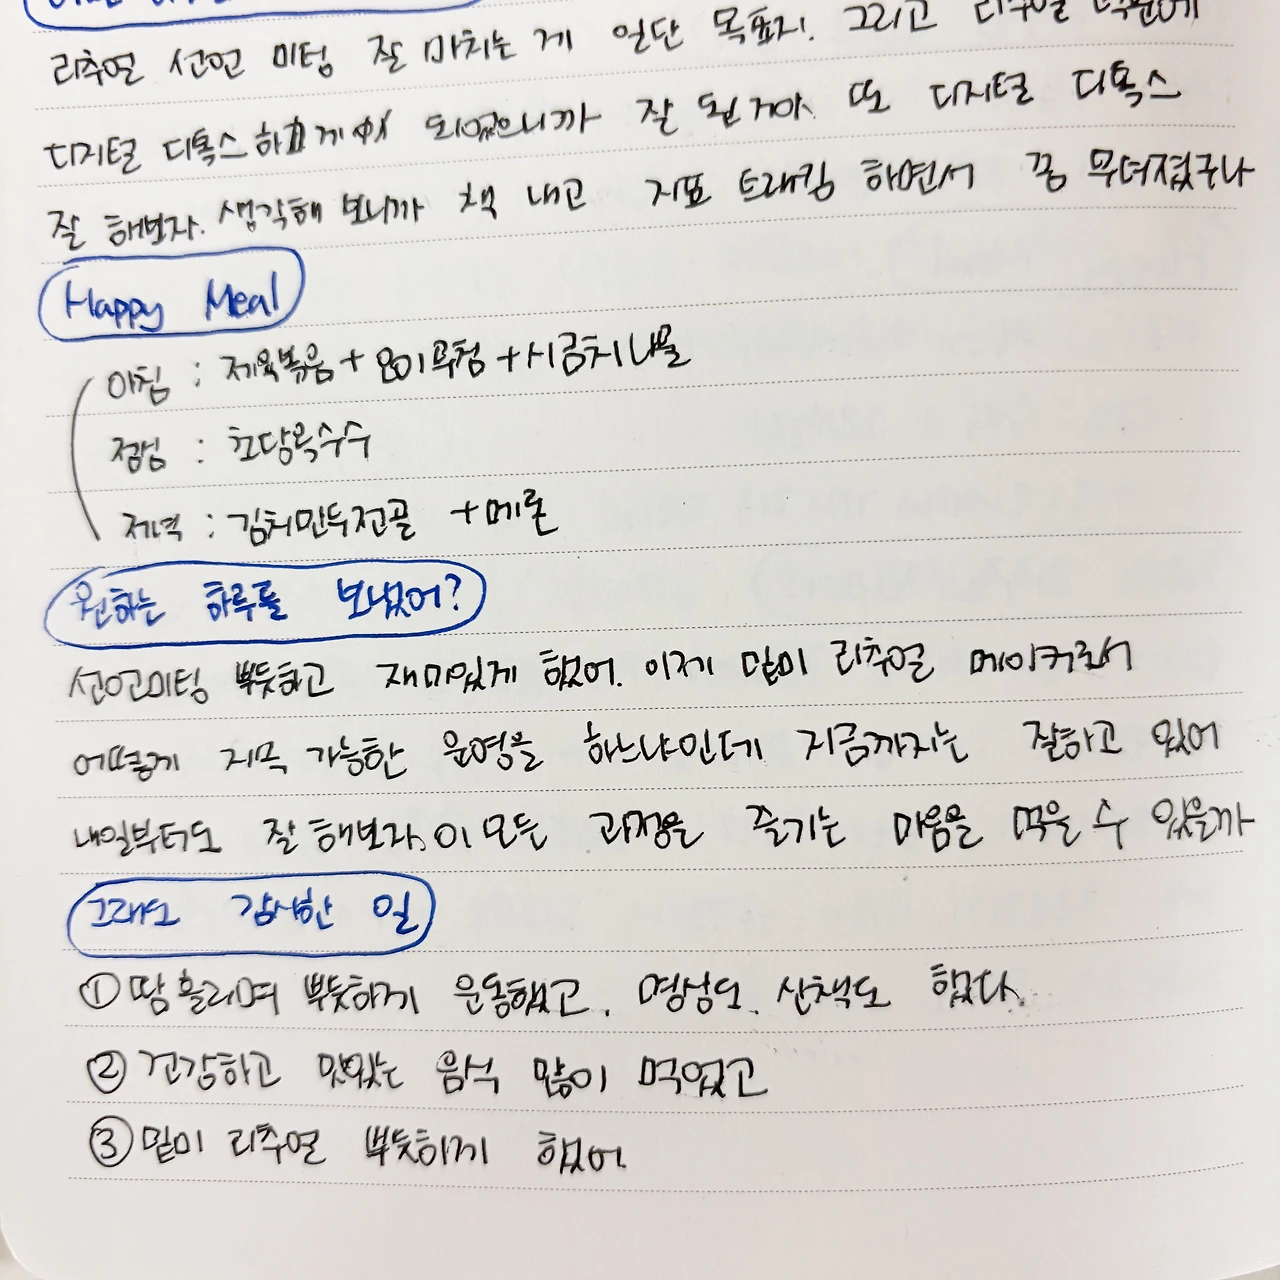 리추얼 선언 미팅 잘 마치는 게 일단 목표지. 그리고 리추얼 덕분에
디지털 디톡스하게 되었으니까 잘 된거야. 또 디지털 디톡스
잘 해보자. 생각해 보니까 책 내고 지표 트래킹 하면서 꽁 무뎌졌구나
Happy Meal
아침 : 제육볶음 + 오이무침 + 시금치나물
점심 : 초당옥수수
저녁 : 김치만두전골 + 메론
원하는 하루를 보냈어?
선언미팅 뿌듯하고 재미있게 했어. 이제 밑미 리추얼 메이커로서
어떻게 지속 가능한 운영을 하느냐인데 지금까지는 잘하고 있어
내일부터도 잘 해보자. 이 모든 과정을 즐기는 마음을 먹을 수 있을까
그래도 감사한 일
① 땀 흘리며 뿌듯하게 운동했고, 명상도, 산책도 했다.
② 건강하고 맛있는 음식 많이 먹었고
③ 밑미 리추얼 뿌듯하게 했어.